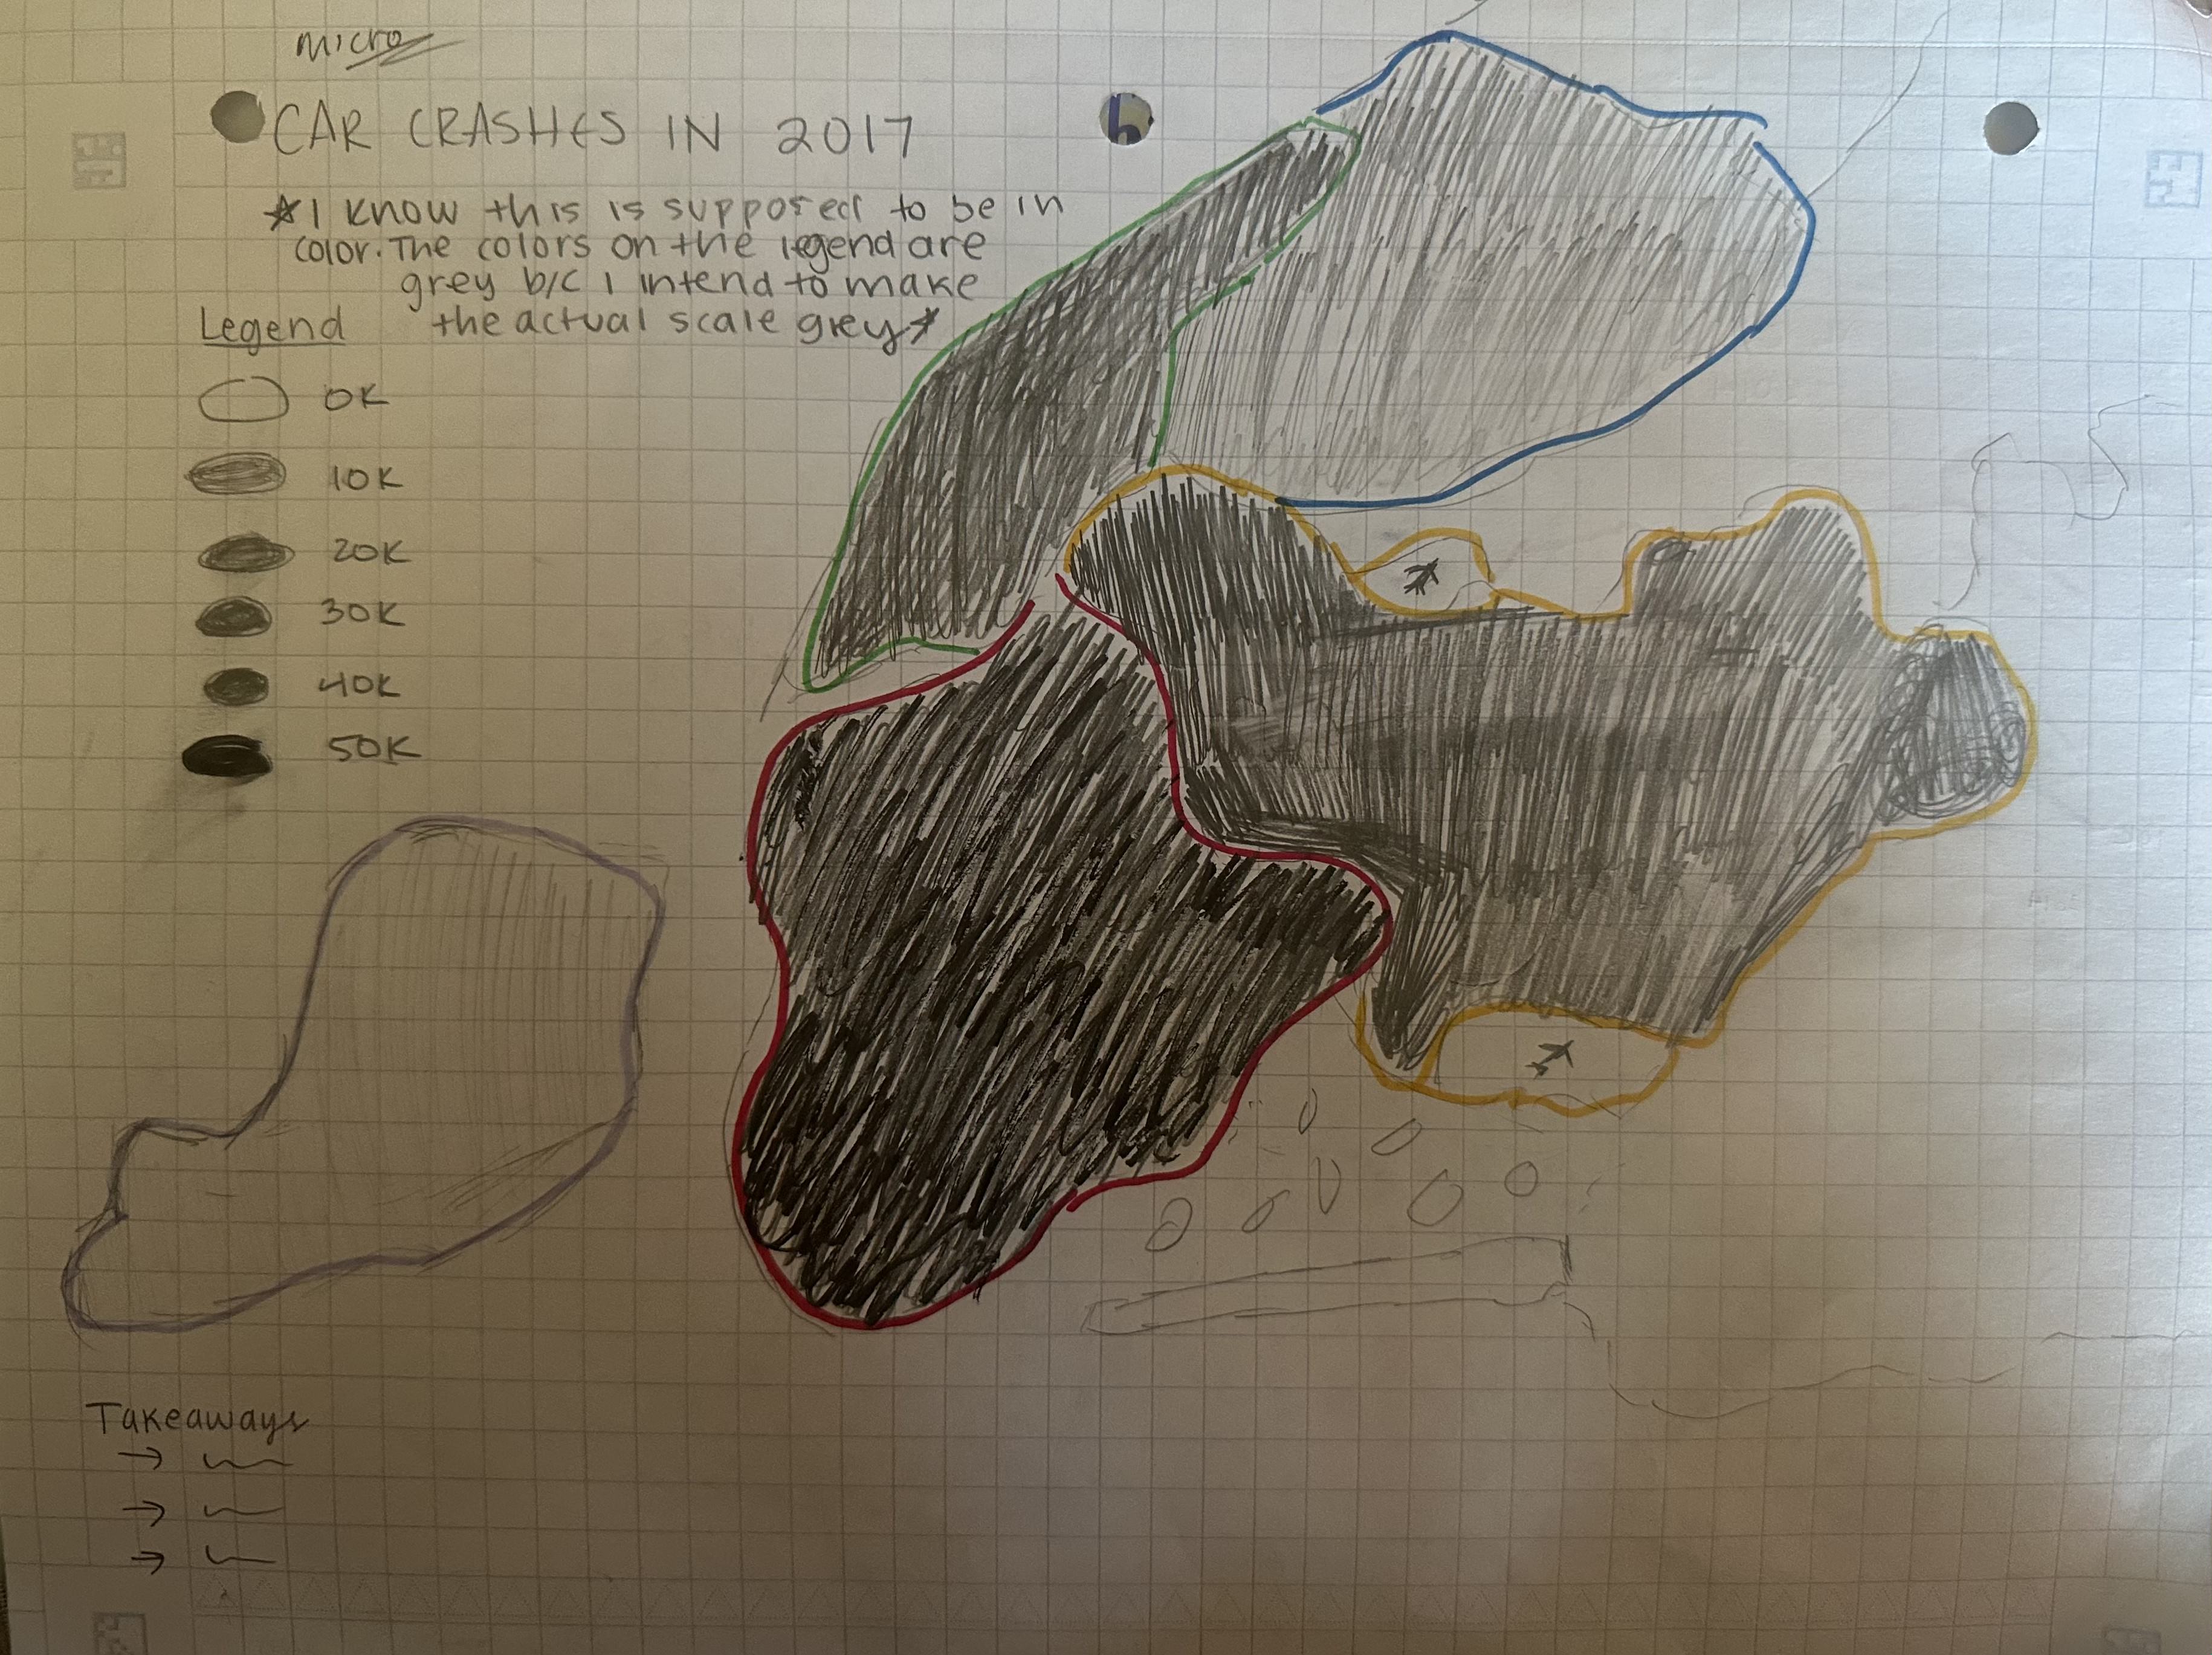 micro
CAR CRASHES IN 2017
*I know this is supposed to be in
color. The colors on the legend are
grey b/c I intend to make
the actual scale grey*
Legend
0K
10K
20K
30K
40K
50K
Takeaways